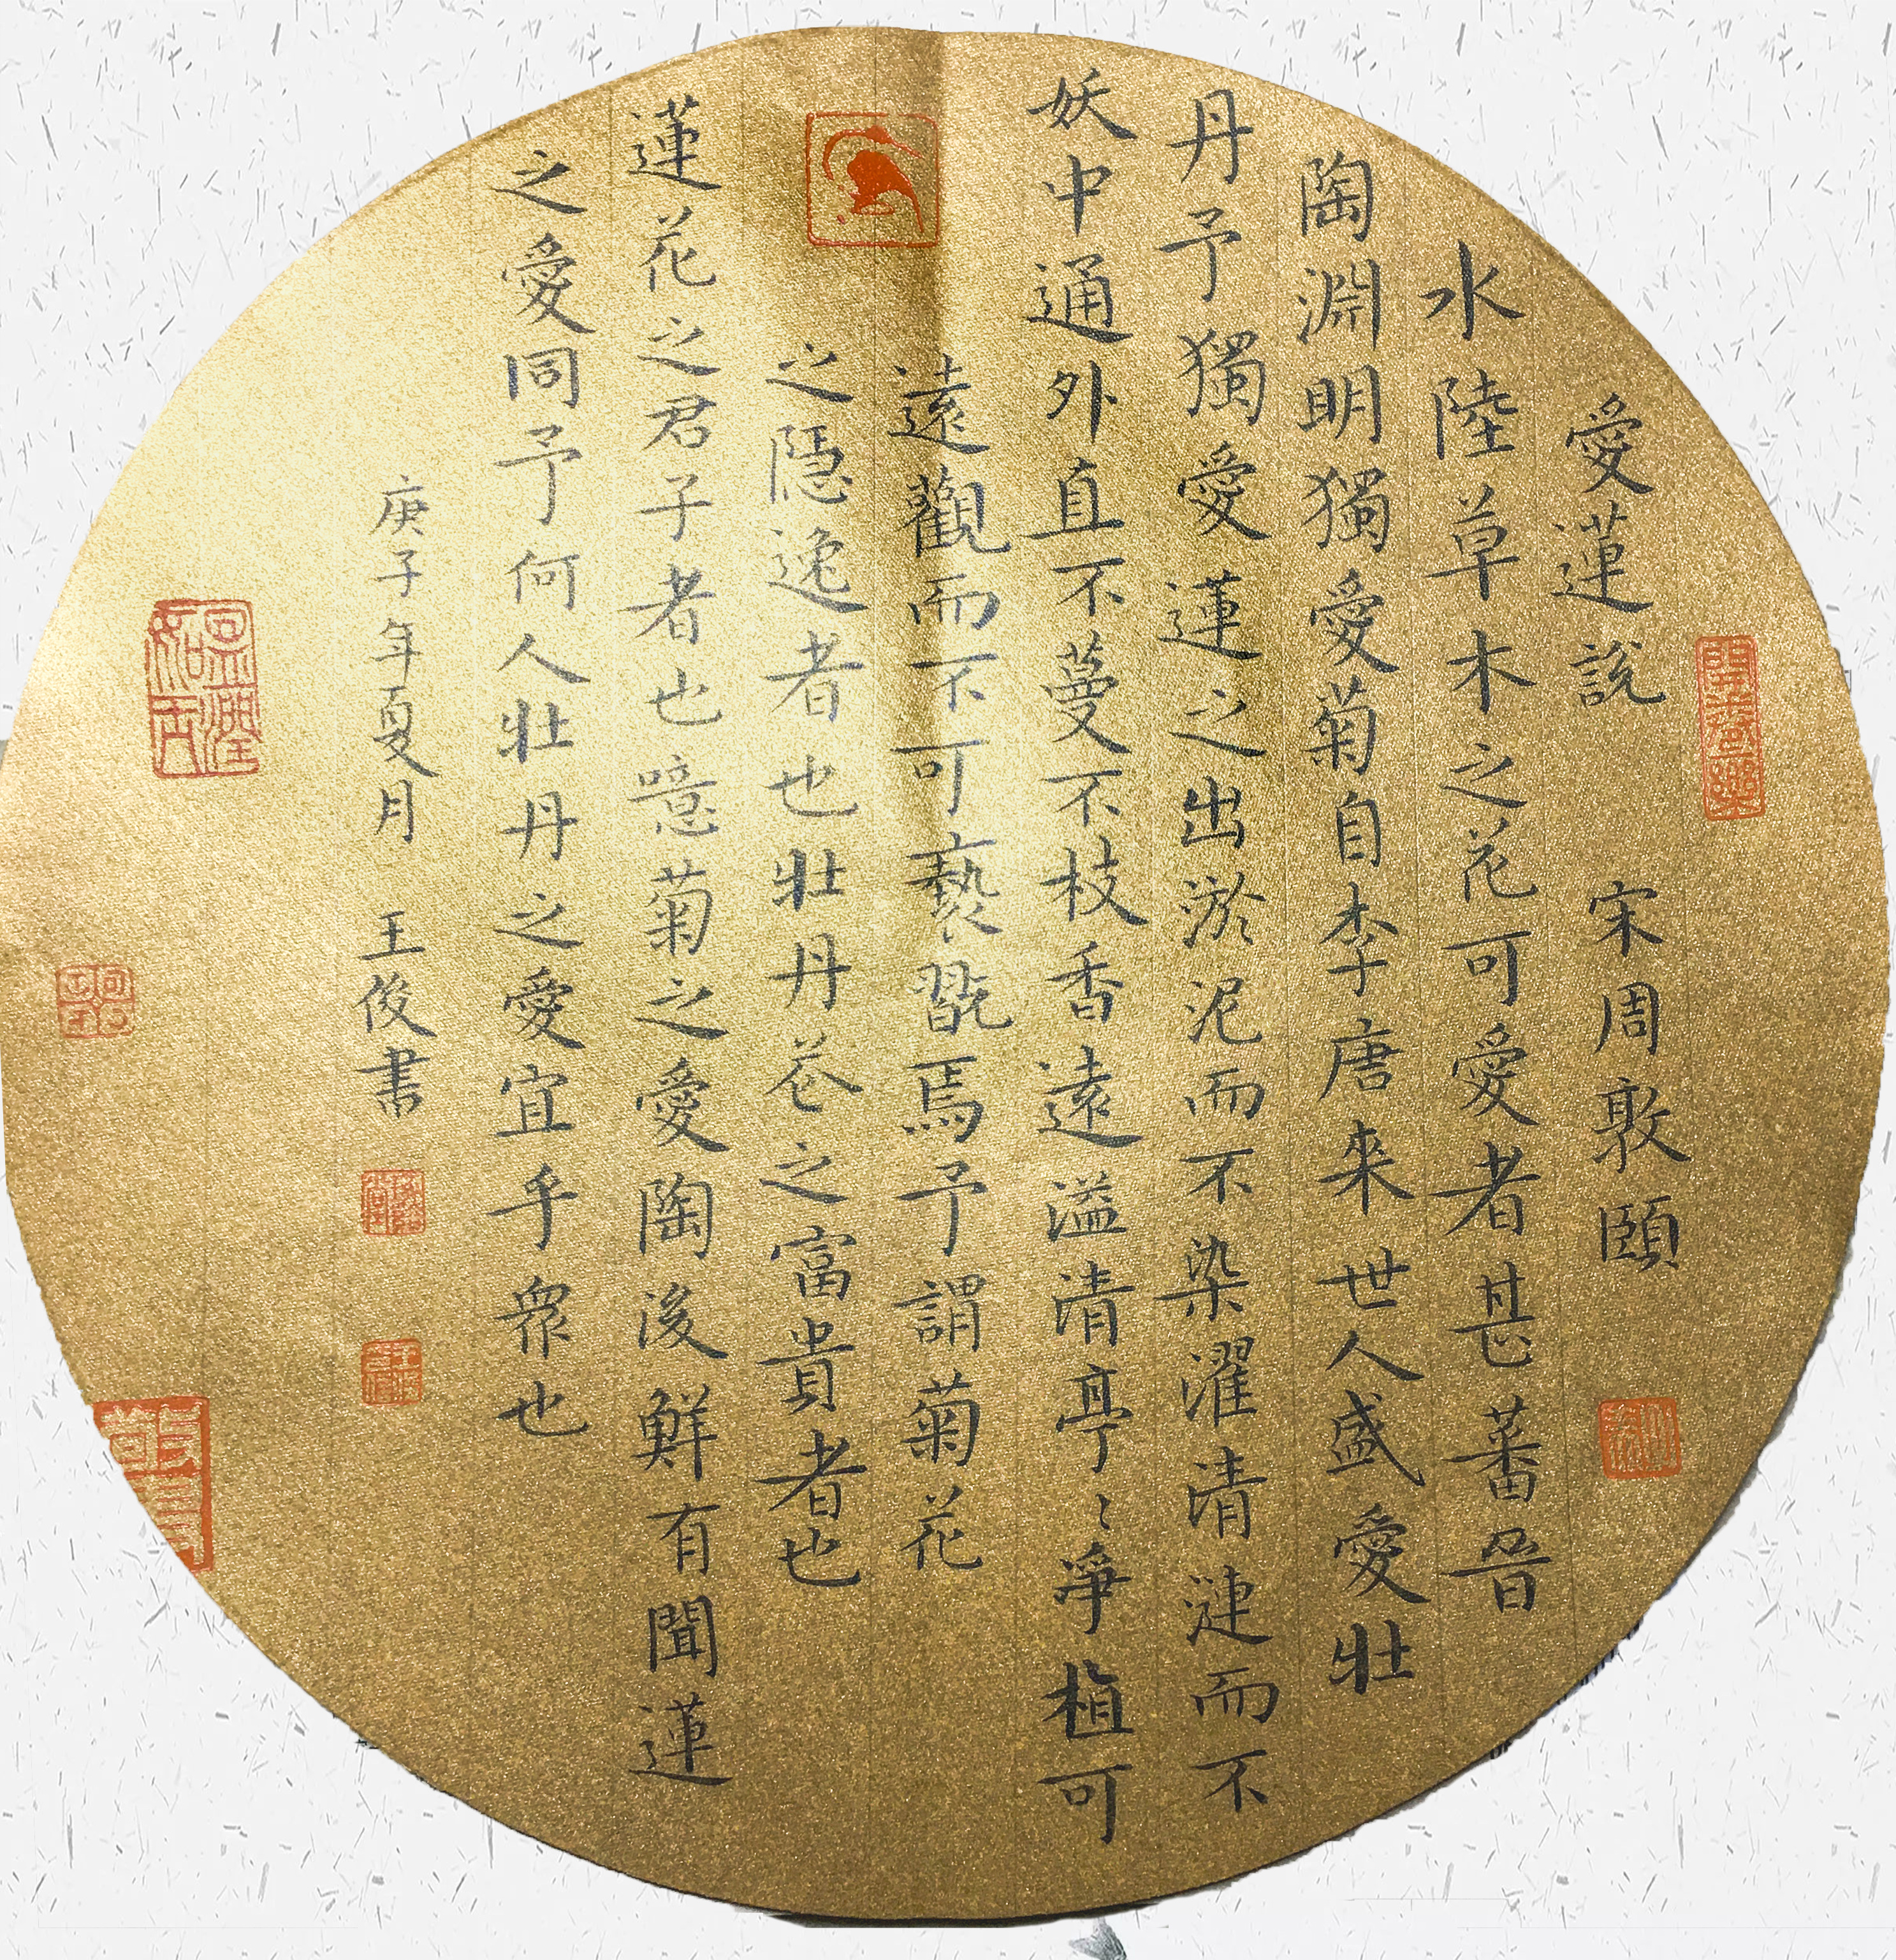 愛蓮說 宋周敦頤
水陸草木之花可愛者甚蕃晉
陶淵明獨愛菊自李唐來世人盛愛壯
丹予獨愛蓮之出淤泥而不染濯清漣而不
妖中通外直不蔓不枝香遠溢清亭〻爭植可
遠觀而不可褻翫焉予謂菊花
之隱逸者也壯丹花之富貴者也
蓮花之君子者也噫菊之愛陶後鮮有聞蓮
之愛同予何人壯丹之愛宜乎衆也
庚子年夏月 王俊書